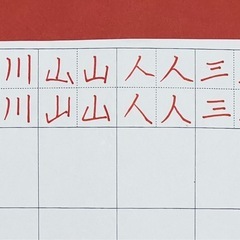 川山山人人三
川山山人人三